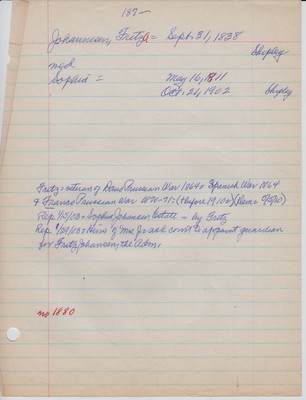 187—
Johannsen, Fritz = Sept. 31, 1838
Shipley
mgd
Sophie = May 16, 1811
Oct. 21, 1902 Shipley
Fritz = veteran of Dano Prussian War 1864 = Spanish War 1864
& Franco Prussian War
Rep 1/5/03 = Sophia Johansen Estate — by Fritz
Rep 1/09/03 = Heirs of Mrs J. ask court to appoint guardian
for Fritz Johansen, the Adm.
no 1880